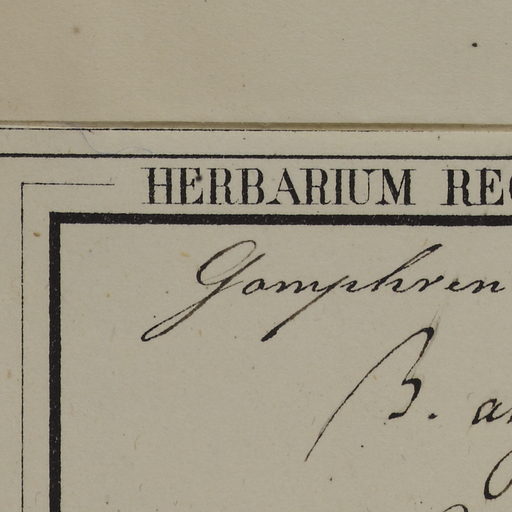 HERBARIUM REG
Gomphren
B. a